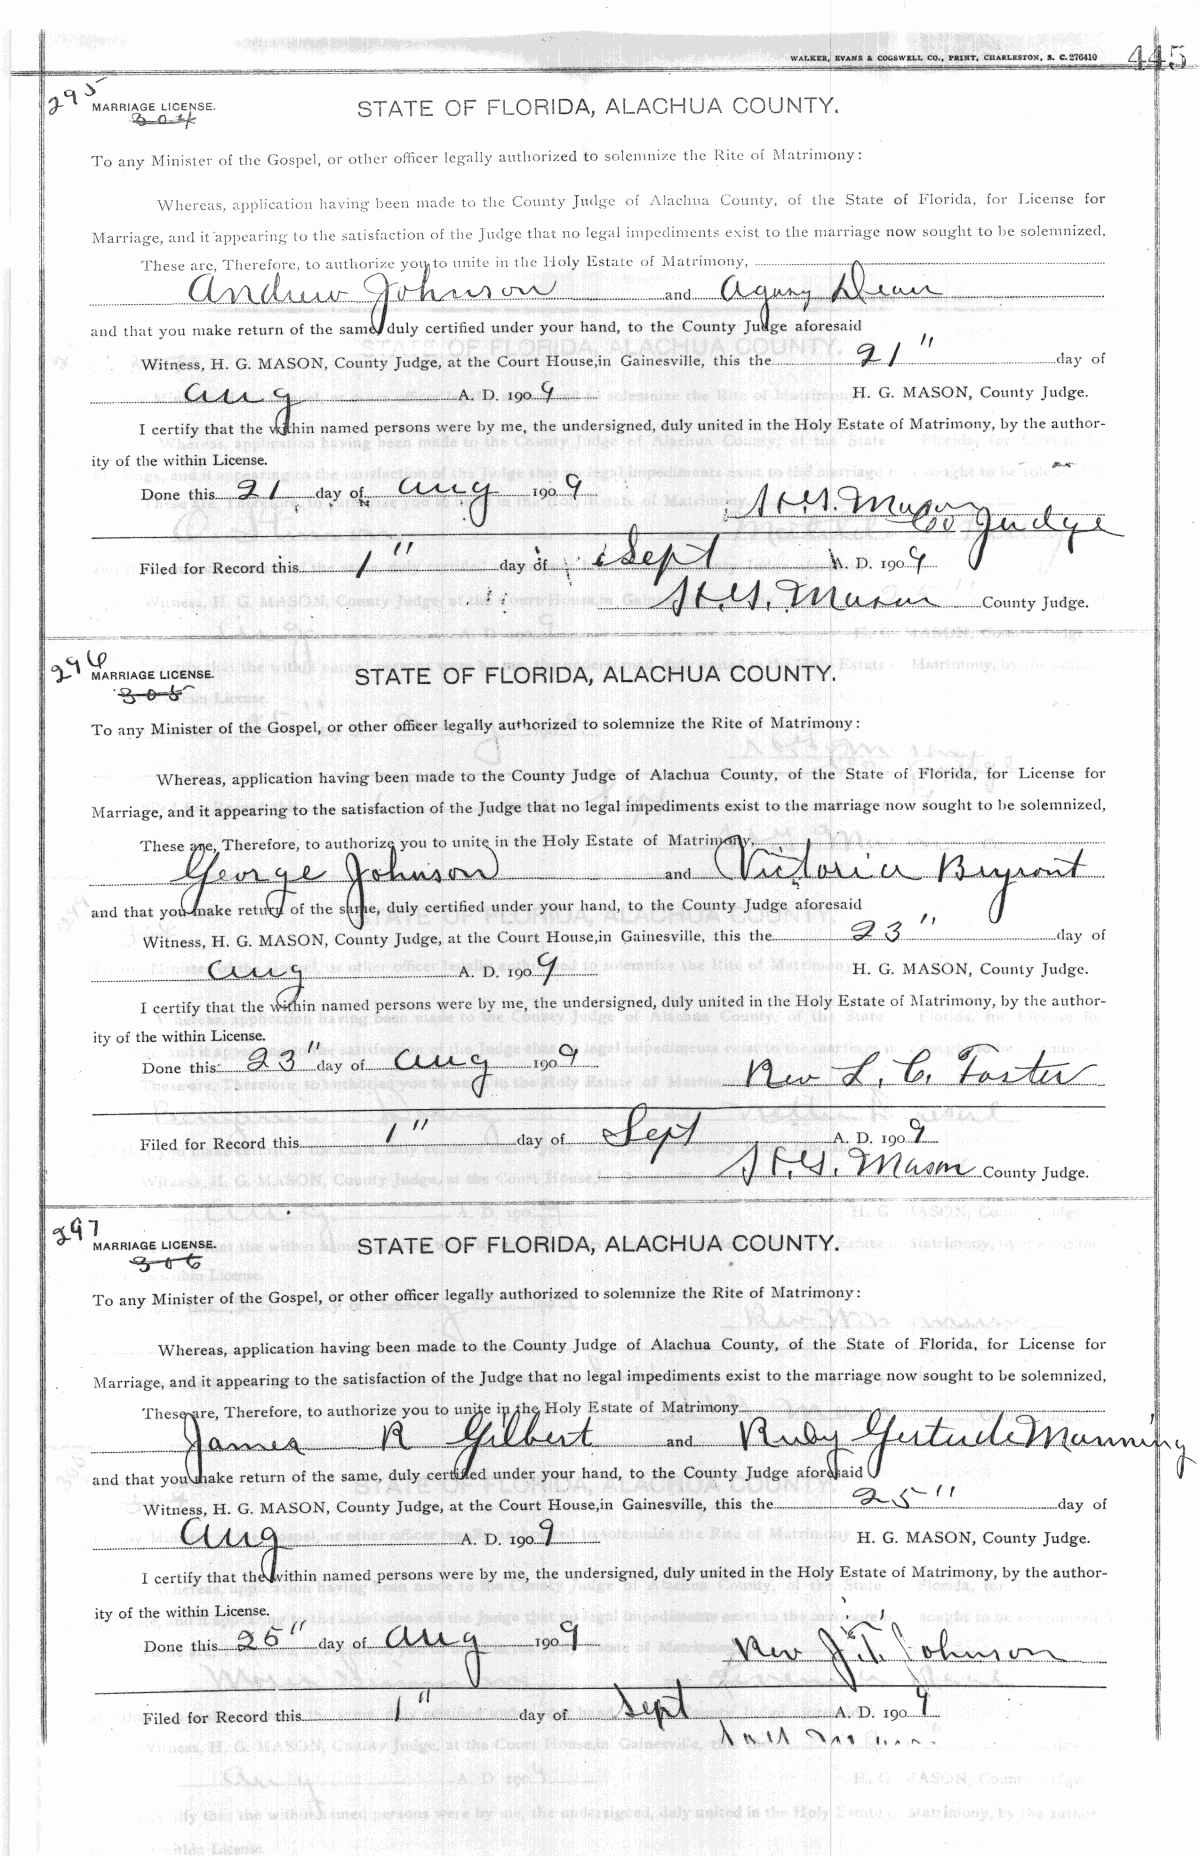 WALKER, EVANS & COGSWELL CO., PRINT, CHARLESTON, S. C. 276410 445
295
MARRIAGE LICENSE. STATE OF FLORIDA, ALACHUA COUNTY.
304
To any Minister of the Gospel, or other officer legally authorized to solemnize the Rite of Matrimony:
Whereas, application having been made to the County Judge of Alachua County, of the State of Florida, for License for
Marriage, and it appearing to the satisfaction of the Judge that no legal impediments exist to the marriage now sought to be solemnized.
These are, Therefore, to authorize you to unite in the Holy Estate of Matrimony,
Andrew Johnson and Dean
and that you make return of the same, duly certified under your hand, to the County Judge aforesaid
Witness, H. G. MASON, County Judge, at the Court House, in Gainesville, this the 21" day of
Aug A. D. 1909 H. G. MASON, County Judge.
I certify that the within named persons were by me, the undersigned, duly united in the Holy Estate of Matrimony, by the author-
ity of the within License.
Done this 21 day of Aug 1909 H.G. Mason
Co Judge
Filed for Record this 1" day of Sept A. D. 1909
H.G. Mason County Judge.
296
MARRIAGE LICENSE. STATE OF FLORIDA, ALACHUA COUNTY.
305
To any Minister of the Gospel, or other officer legally authorized to solemnize the Rite of Matrimony:
Whereas, application having been made to the County Judge of Alachua County, of the State of Florida, for License for
Marriage, and it appearing to the satisfaction of the Judge that no legal impediments exist to the marriage now sought to be solemnized,
These are, Therefore, to authorize you to unite in the Holy Estate of Matrimony,
George Johnson and Victoria Bryont
and that you make return of the same, duly certified under your hand, to the County Judge aforesaid
Witness, H. G. MASON, County Judge, at the Court House, in Gainesville, this the 23" day of
Aug A. D. 1909 H. G. MASON, County Judge.
I certify that the within named persons were by me, the undersigned, duly united in the Holy Estate of Matrimony, by the author-
ity of the within License.
Done this 23" day of Aug 1909 Rev L. C. Foster
Filed for Record this 1" day of Sept A. D. 1909
H.G. Mason County Judge.
297
MARRIAGE LICENSE. STATE OF FLORIDA, ALACHUA COUNTY.
306
To any Minister of the Gospel, or other officer legally authorized to solemnize the Rite of Matrimony:
Whereas, application having been made to the County Judge of Alachua County, of the State of Florida, for License for
Marriage, and it appearing to the satisfaction of the Judge that no legal impediments exist to the marriage now sought to be solemnized,
These are, Therefore, to authorize you to unite in the Holy Estate of Matrimony
James R Gilbert and Ruby Gertrude Manning
and that you make return of the same, duly certified under your hand, to the County Judge aforesaid
Witness, H. G. MASON, County Judge, at the Court House, in Gainesville, this the 25" day of
Aug A. D. 1909 H. G. MASON, County Judge.
I certify that the within named persons were by me, the undersigned, duly united in the Holy Estate of Matrimony, by the author-
ity of the within License.
Done this 25" day of Aug 1909 Rev J.T. Johnson
Filed for Record this 1" day of Sept A. D. 1909